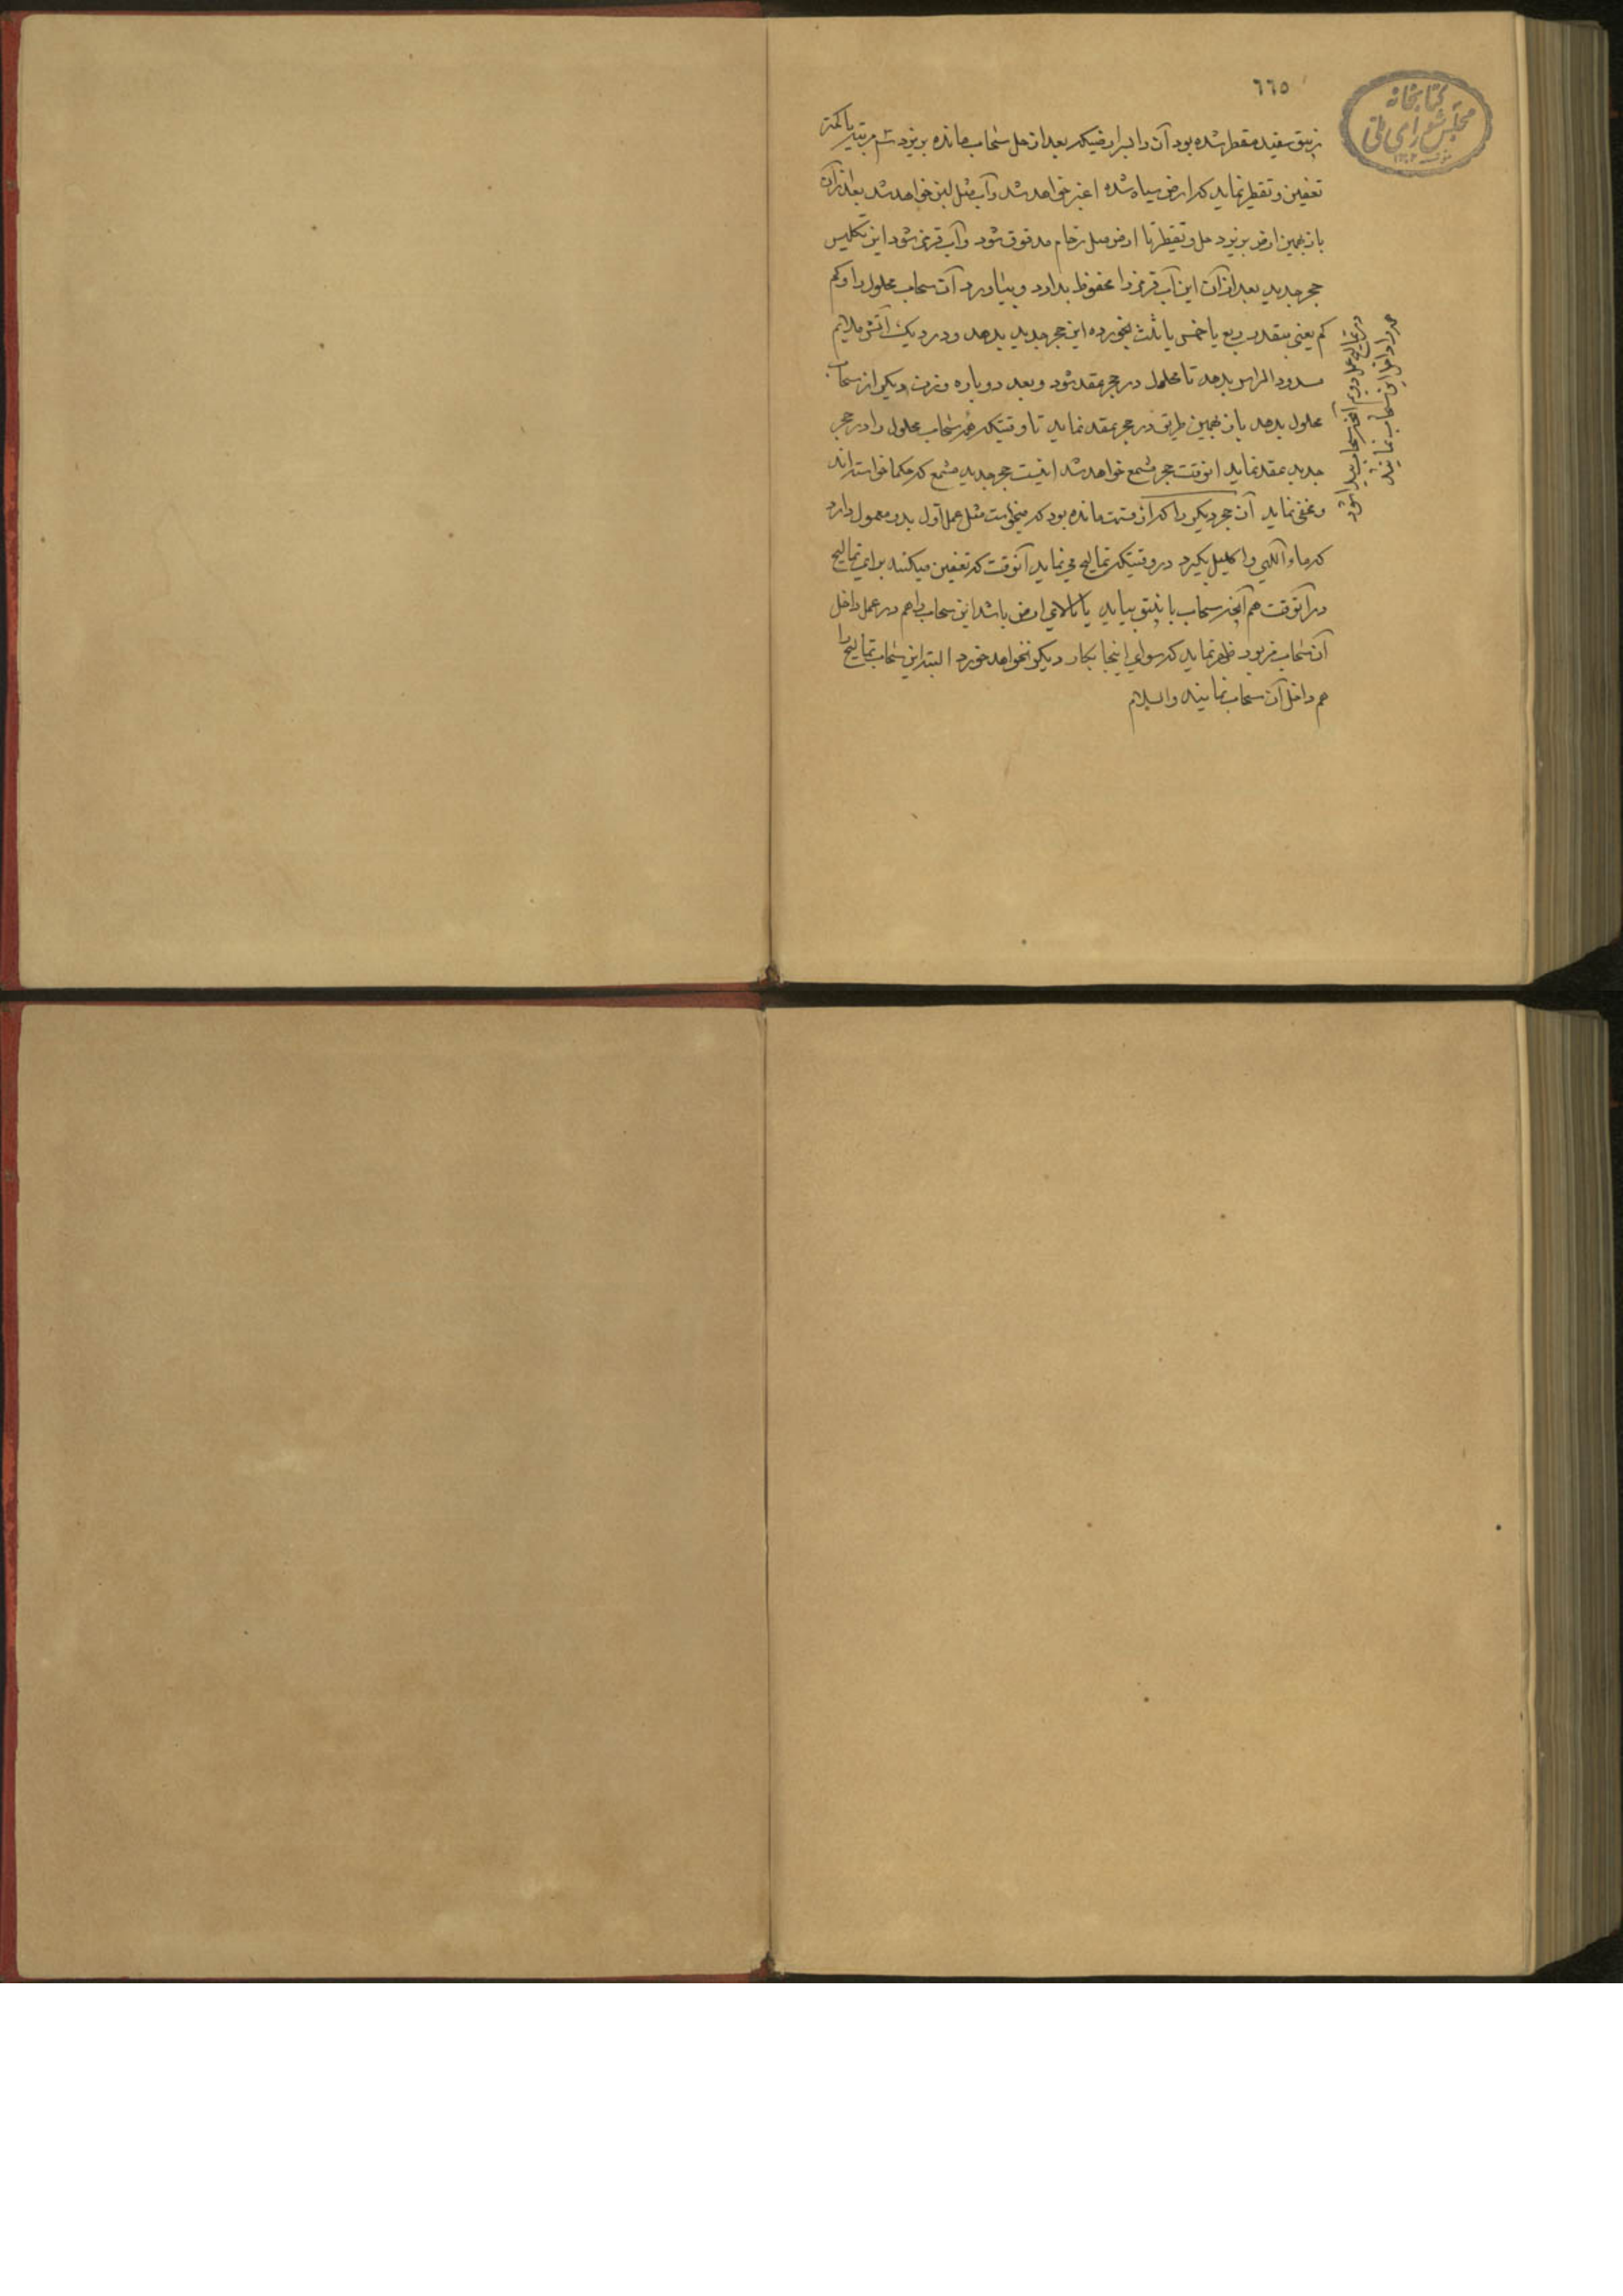 ٦٦٥
کتابخانه
مجلس شورای ملی
زیبق سفید مقطر شده بود آن را بر ارضیکه بعد از حل سحاب مانده بریزد
تعفین و تقطیر نماید که ارض سیاه شده اغبر خواهد شد و آب مثل لبن خواهد شد بعد از آن
باز بهمین ارض بریزد حل و تقطیر تا ارض مثل رخام مدقوق شود و آب قرمز شود این تکلیس
حجر جدید بعد از آن این آب قرمز را محفوظ بدارد و بیاورد آن سحاب محلول را و کم
کم یعنی بقدر ربع یا خمس یا ثلث بخورده این حجر جدید بدهد و در دیک آتش ملایم
مسدود الراس بدهد تا محلول در حجر عقد شود و بعد دوباره وزن دیکر از سحاب
محلول بدهد باز بهمین طریق در حجر عقد نماید تا وقتیکه همه سحاب محلول را در حجر
جدید عقد نماید انوقت حجر مشمع خواهد شد اینست حجر جدید مشمع که حکما خواسته اند
و مخفی نماید آن حجر دیکر را که از قسمت مانده بود که میخواست مثل عمل اول بدو معمول دارد
که ماء الهی و اکلیل بکیرد در وقتیکه تمالیح می نماید آنوقت که تعفین میکنند برای تمالیح
در آنوقت هم آنچه سحاب باینبق بیاید یا بالای ارض باشد این سحاب را هم در عمل داخل
آن سحاب مزبور نماید که سوای اینجا بکار دیکر نخواهد خورد البته این سحاب تمالیح را
هم داخل آن سحاب نمایند والسلام
در تمالیح عمل دویم آنچه سحاب پیدا شود
همه را داخل این سحاب نمایند